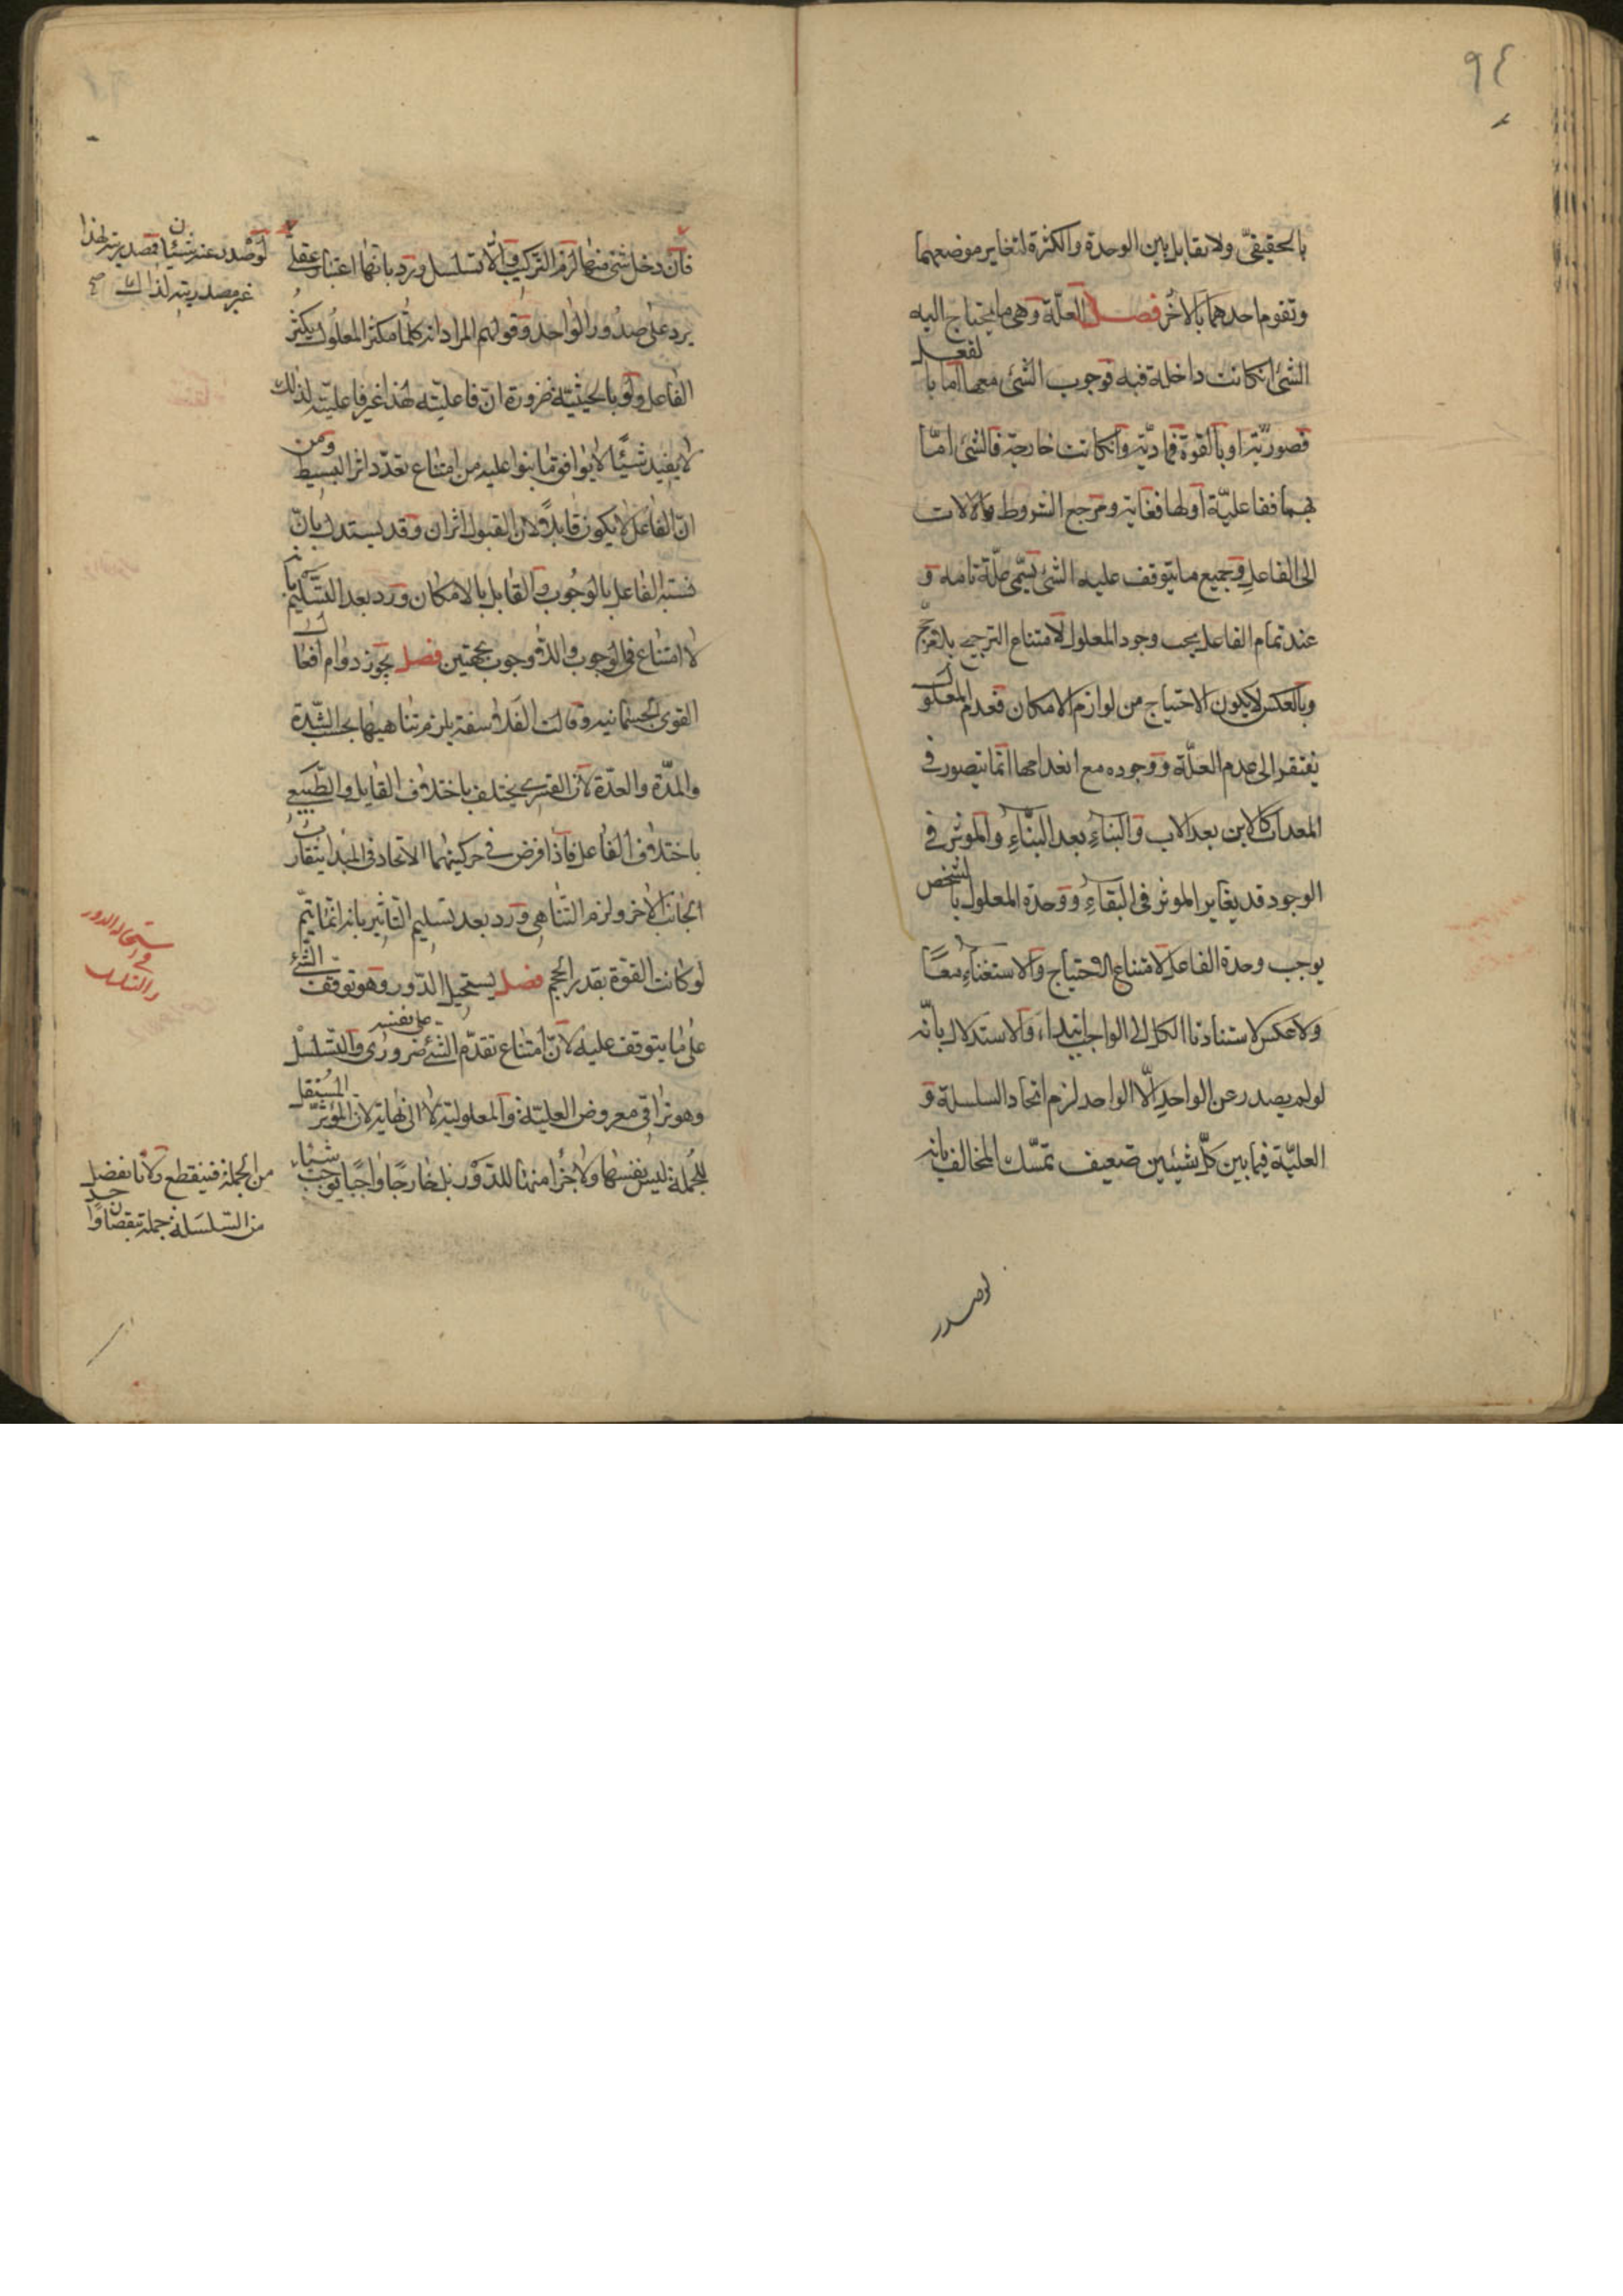 ٩٤
بالحقيقيّ ولا تقابل بين الوحدة والكثرة لتغاير موضعهما
وتقوم احدهما بالاخر فصل العلّة وهى ما يحتاج اليه
الشئ ان كانت داخلة فيه فوجوب الشئ معها اما بالفعل
فصوريّة او بالقوة فمادّية وان كانت خارجة فالشئ امّا
بهما ففاعليّة اولها فغاية ومرجع الشروط والالات
الى الفاعل وجميع ما يتوقف عليه الشئ تسمّى علّة تامه و
عند تمام الفاعل يجب وجود المعلول لامتناع الترجيح بلا مرجّح
وبالعكس لكون الاحتياج من لوازم الامكان فعدم المعلول
يفتقر الى عدم العلّة ووجوده مع انعدامها انّما يتصور فى
المعدات كالابن بعد الاب والبناء بعد البنّاء والموثر فى
الوجود قد يغاير الموثر فى البقاء ووحدة المعلول بالشخص
يوجب وحدة الفاعل لامتناع الاحتياج والاستغناء معًا
ولا عكس لاستنادنا الكل الى الواجب ابتداء، والاستدلال بانّه
لو لم يصدر عن الواحد الّا الواحد لزم اتحاد السلسلة و
العليّة فيما بين كلّ شيئين ضعيف تمسّك المخالف بانه
لو صدر
لو صدر عنه شيئان فمصدريته لهذا
غير مصدريته لذاك صح
فان دخل شئ منهما لزم التركيب والا تسلسل ورد بانها اعتبار عقلى
يرد على صدور الواحد وقولهم المراد انه كلما تكثر المعلول يكثر
الفاعل ولو بالحيثيّة ضرورة انّ فاعليّته لهذا غير فاعليته لذلك
لا يفيد شيئًا لا يوافق ما بنوا عليه من امتناع تعدّد اثر البسيط ومن
انّ الفاعل لا يكون قابلًا لان القبول اثران وقد يستدل بانّ
نسبة الفاعل بالوجوب والقابل بالامكان ورد بعد التسليم بانه
لا امتناع فى الوجوب واللاوجوب بجهتين فصل يجوز دوام افعال
القوى الجسمانيه وقالت الفلاسفة يلزم تناهيها بحسب الشّدة
والمدّة والعدّة لان القسرى يختلف باختلاف القابل والطّبيعى
باختلاف الفاعل فاذا فرض فى حركتيهما الاتحاد فى المبدا يتفاوت
الجانب الاخر ولزم التناهى ورد بعد تسليم التاثير بانه انّما يتمّ
لو كانت القوة بقدر الحجم فصل يستحيل الدّور وهو توقف الشئ
على ما يتوقف عليه لانّ امتناع تقدّم الشئ على نفسه ضرورى والتسلسل
وهو تراقى معروض العليّة والمعلولية لا الى نهاية لان المؤثّر المستقل
للجملة ليس نفسها ولا جزا منها للدّور بل خارجًا واجبًا يوجب شياء
استحالة الدور
و
والتسلسل
من الجملة فينقطع ولانا نفصل
من السّلسلة جملة بنقصان واحد